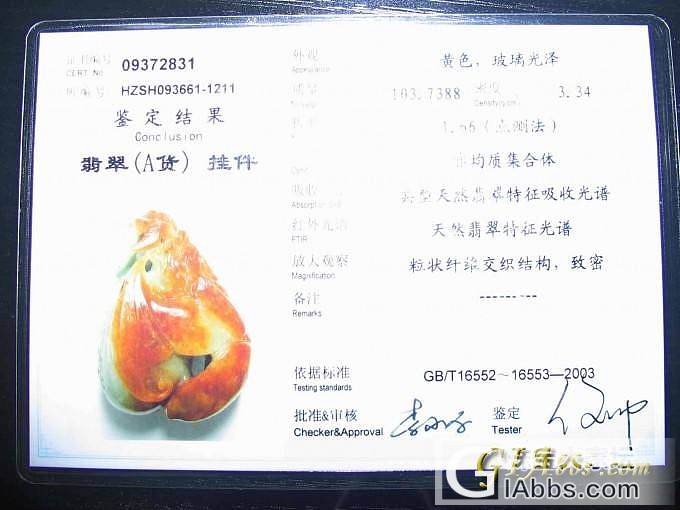 证书编号 09372831
CERT No.
HZSH093661-1211
鉴定结果
Conclusion
翡翠(A货) 挂件
外观 黄色，玻璃光泽
Appearance
质量 103.7388 密度 3.34
Density
1.66（点测法）
均质集合体
吸收 典型天然翡翠特征吸收光谱
Absorption
红外光谱 天然翡翠特征光谱
FTIR
放大观察 粒状纤维交织结构，致密
Magnification
备注 -------
Remarks
依据标准 GB/T16552～16553—2003
Testing standards
批准&审核 鉴定
Checker&Approval Tester
GIAbbs.com